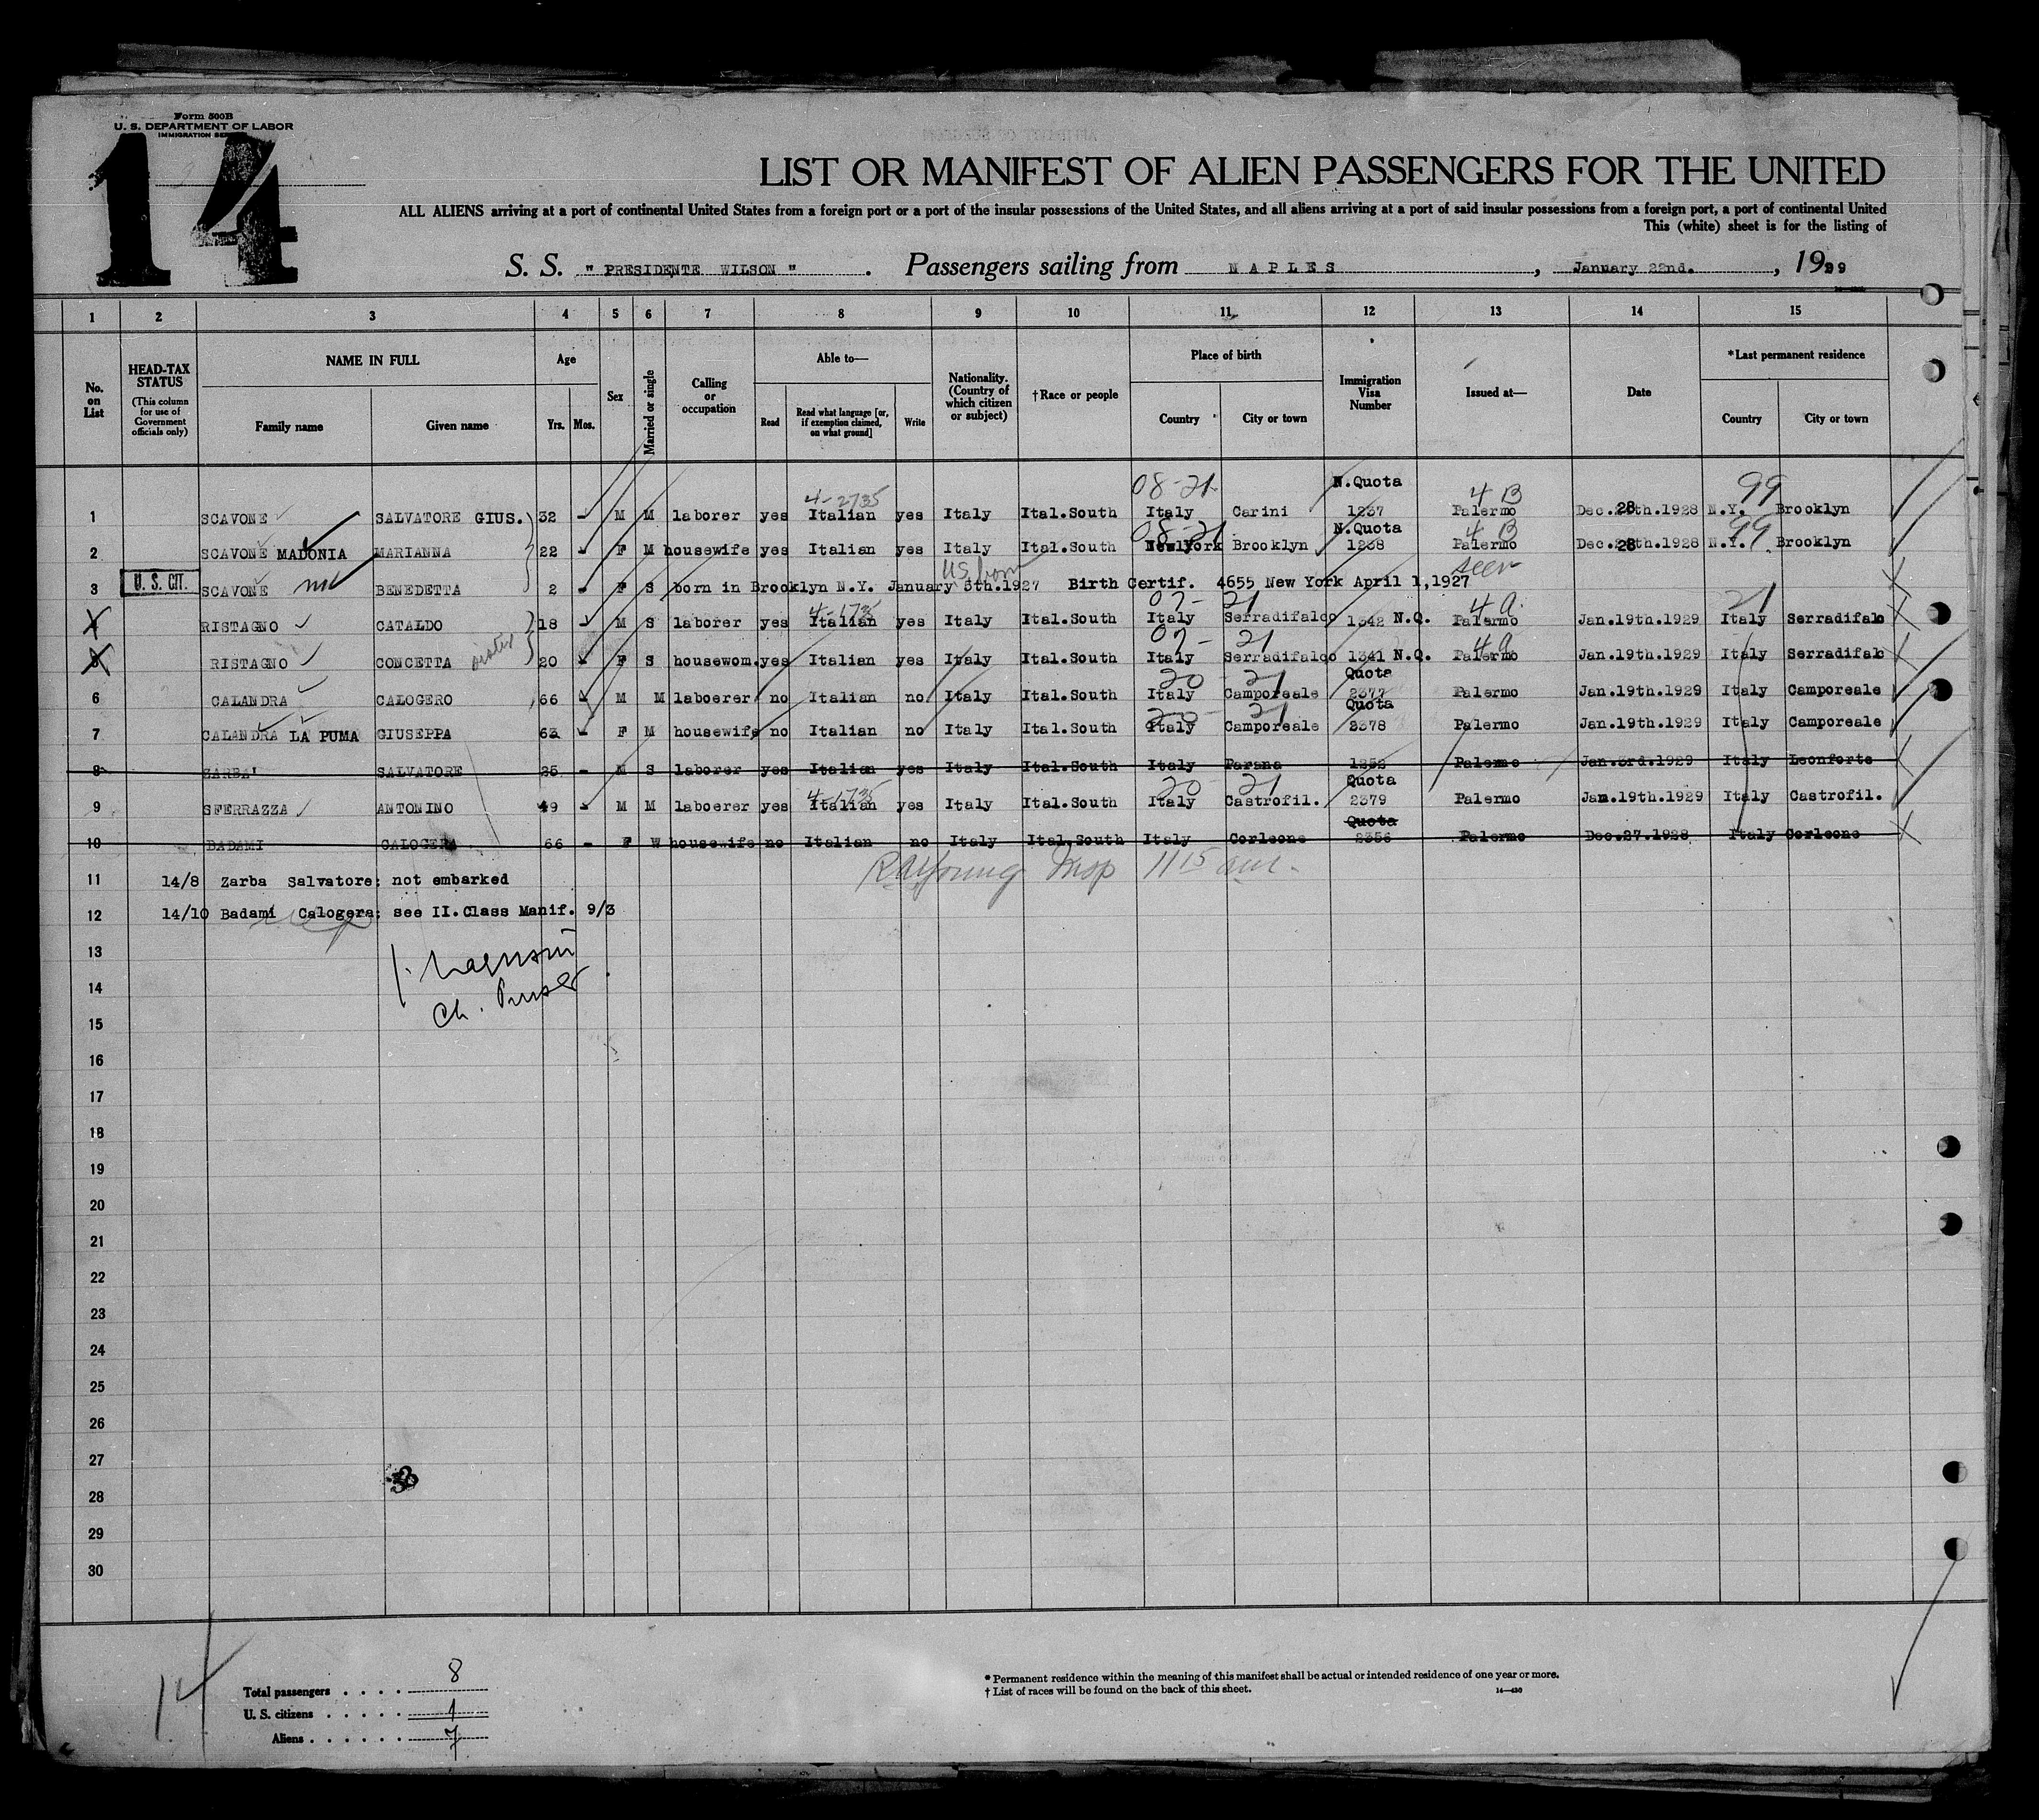 Form 500B
U. S. DEPARTMENT OF LABOR
IMMIGRATION
14
LIST OR MANIFEST OF ALIEN PASSENGERS FOR THE UNITED
ALL ALIENS arriving at a port of continental United States from a foreign port or a port of the insular possessions of the United States, and all aliens arriving at a port of said insular possessions from a foreign port, a port of continental United
This (white) sheet is for the listing of
S. S. " PRESIDENTE WILSON " . Passengers sailing from NAPLES , January 22nd. , 1929
1 2 3 4 5 6 7 8 9 10 11 12 13 14 15
No. on List
HEAD-TAX STATUS
(This column for use of Government officials only)
NAME IN FULL
Family name Given name
Age
Yrs. Mos.
Sex
Married or single
Calling or occupation
Able to—
Read Read what language [or, if exemption claimed, on what ground] Write
Nationality. (Country of which citizen or subject)
†Race or people
Place of birth
Country City or town
Immigration Visa Number
Issued at—
Date
*Last permanent residence
Country City or town
4-2735 08-21 N.Quota 4 B 99
1 SCAVONE SALVATORE GIUS. 32 - M M laborer yes Italian yes Italy Ital.South Italy Carini 1237 Palermo Dec.28th.1928 N.Y. Brooklyn
08-21 N.Quota 4 B 99
2 SCAVONE MADONIA MARIANNA 22 - F M housewife yes Italian yes Italy Ital.South NewYork Brooklyn 1238 Palermo Dec.28th.1928 N.Y. Brooklyn
U.S. born seen
3 U. S. CIT. SCAVONE BENEDETTA 2 - F S born in Brooklyn N.Y. January 5th.1927 Birth Certif. 4655 New York April 1,1927
4-1735 07- 21 4 a. 21
RISTAGNO CATALDO 18 - M S laborer yes Italian yes Italy Ital.South Italy Serradifalco 1342 N.Q. Palermo Jan.19th.1929 Italy Serradifalc
07- 21 4 a
RISTAGNO CONCETTA sister 20 - F S housewom. yes Italian yes Italy Ital.South Italy Serradifalco 1341 N.Q. Palermo Jan.19th.1929 Italy Serradifalc
20 21 Quota
6 CALANDRA CALOGERO 66 - M M laboerer no Italian no Italy Ital.South Italy Camporeale 2377 Palermo Jan.19th.1929 Italy Camporeale
20 21 Quota
7 CALANDRA LA PUMA GIUSEPPA 63 - F M housewife no Italian no Italy Ital.South Italy Camporeale 2378 Palermo Jan.19th.1929 Italy Camporeale
8 ZARBA' SALVATORE 25 - M S laborer yes Italian yes Italy Ital.South Italy Parana 1252 Palermo Jan.3rd.1929 Italy Leonforte
4-1735 20 21 Quota
9 SFERRAZZA ANTONINO 49 - M M laboerer yes Italian yes Italy Ital.South Italy Castrofil. 2379 Palermo Jan.19th.1929 Italy Castrofil.
Quota
10 BADAMI CALOGERA 66 - F W housewife no Italian no Italy Ital.South Italy Corleone 2356 Palermo Dec.27.1928 Italy Corleone
11 14/8 Zarba Salvatore: not embarked
RAYoung Insp 11 15 am.
12 14/10 Badami Calogera: see II.Class Manif. 9/3
13
Ch. Purser
14
15
16
17
18
19
20
21
22
23
24
25
26
27
28
29
30
14
Total passengers . . . . 8
U. S. citizens . . . . . 1
Aliens . . . . . . 7
* Permanent residence within the meaning of this manifest shall be actual or intended residence of one year or more.
† List of races will be found on the back of this sheet.
14—430